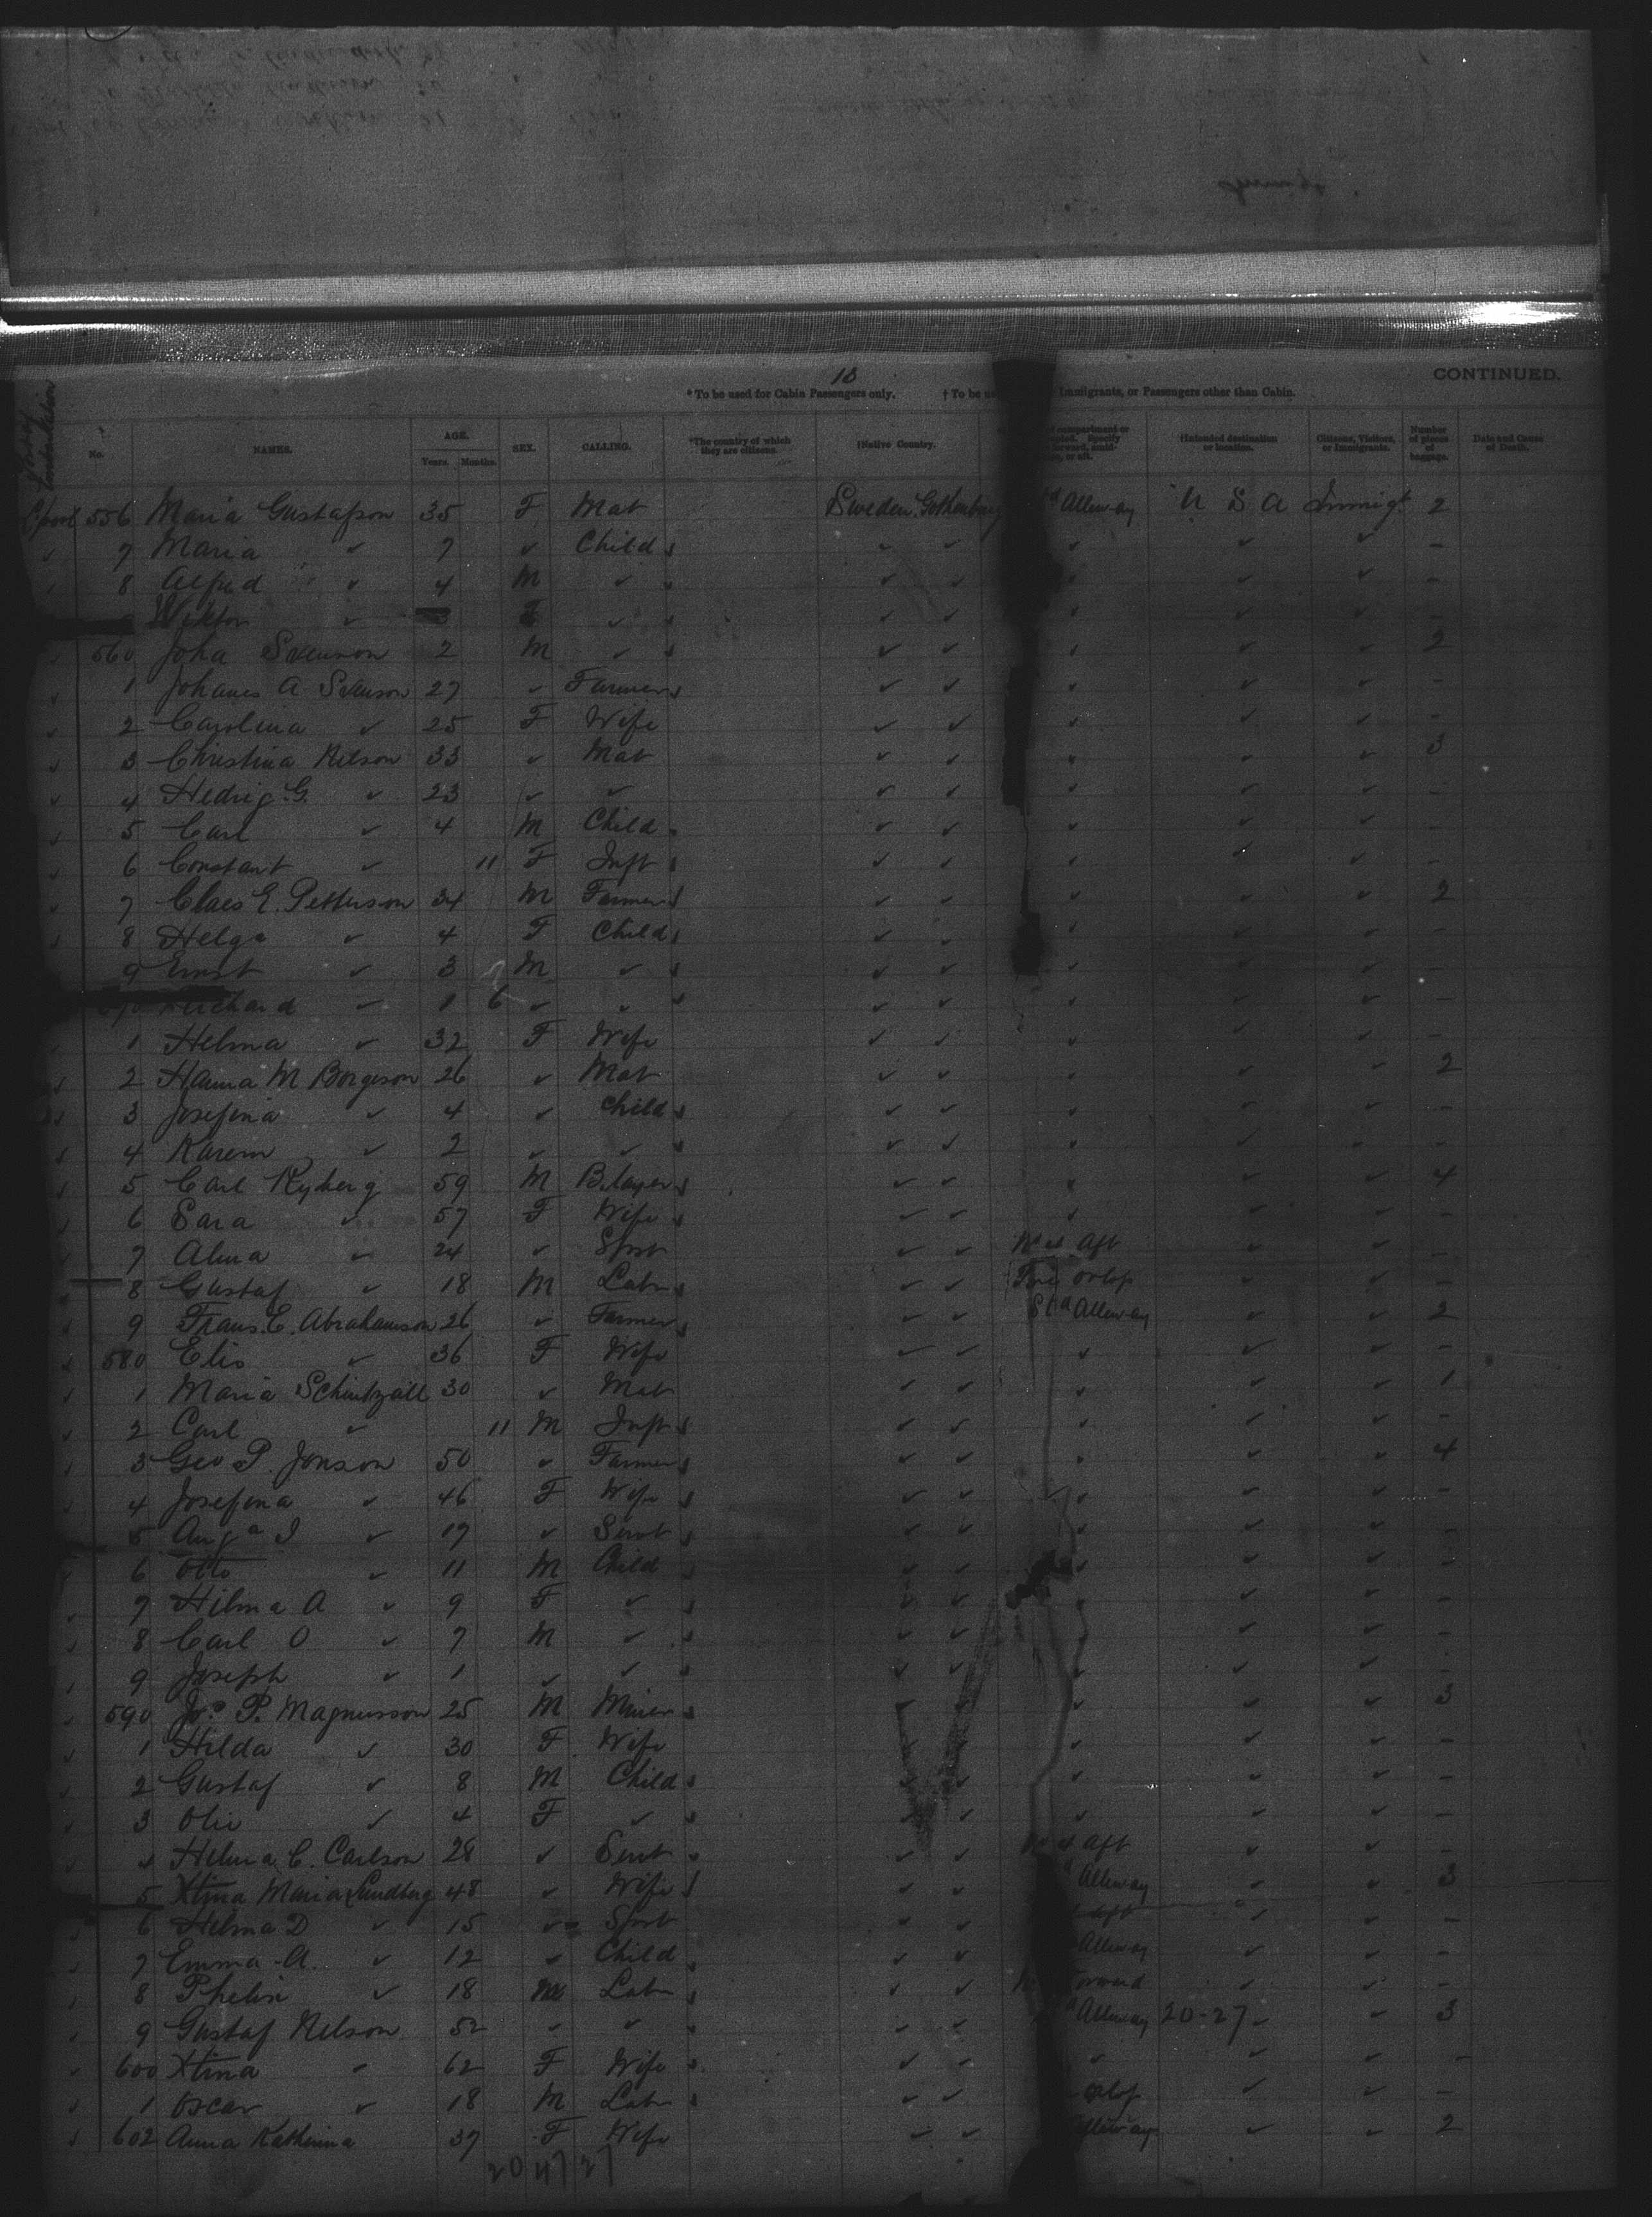 18
CONTINUED.
* To be used for Cabin Passengers only. † To be Immigrants, or Passengers other than Cabin.
No. NAMES. AGE. Years. Months. SEX. CALLING. *The country of which they are citizens. †Native Country. compartment or Specify or aft. †Intended destination or location. Citizens, Visitors, or Immigrants. Number of pieces of baggage. Date and Cause of Death.
556 Maria Gustafson 35 F Mat Sweden Gothenburg Alleway U S A Immigt 2
7 Maria ✓ 7 ✓ Child ✓ ✓ ✓ ✓ ✓ –
8 Alfred ✓ 4 M ✓ ✓ ✓ ✓ ✓ ✓ –
Wiktor ✓ ✓ ✓ ✓ ✓ ✓ ✓ –
560 Joha Svenson 2 M ✓ ✓ ✓ ✓ ✓ ✓ 2
1 Johanes A Svenson 27 ✓ Farmer ✓ ✓ ✓ ✓ ✓ –
2 Carolina ✓ 25 F Wife ✓ ✓ ✓ ✓ ✓ –
3 Christina Nelson 33 ✓ Mat ✓ ✓ ✓ ✓ ✓ 3
4 Hedvig G. ✓ 23 ✓ ✓ ✓ ✓ ✓ ✓ ✓ –
5 Carl ✓ 4 M Child ✓ ✓ ✓ ✓ ✓ –
6 Constant ✓ 11 F Inft ✓ ✓ ✓ ✓ ✓ –
7 Claes E. Petterson 34 M Farmer ✓ ✓ ✓ ✓ ✓ 2
8 Helga ✓ 4 F Child ✓ ✓ ✓ ✓ ✓ –
9 Ernst ✓ 3 M ✓ ✓ ✓ ✓ ✓ ✓ –
Richard ✓ 1 6 ✓ ✓ ✓ ✓ ✓ ✓ ✓ –
1 Helma ✓ 32 F Wife ✓ ✓ ✓ ✓ ✓ –
2 Hanna M Borgeson 26 ✓ Mat ✓ ✓ ✓ ✓ ✓ 2
3 Josefina ✓ 4 ✓ Child ✓ ✓ ✓ ✓ ✓ –
4 Karem ✓ 2 ✓ ✓ ✓ ✓ ✓ ✓ ✓ –
5 Carl Ryberg 59 M B.layer ✓ ✓ ✓ ✓ ✓ 4
6 Sara ✓ 57 F Wife ✓ ✓ ✓ ✓ ✓ –
7 Alma ✓ 24 ✓ Spst ✓ ✓ Aft ✓ ✓ –
8 Gustaf ✓ 18 M Labr ✓ ✓ orlop ✓ ✓ –
9 Frans. E. Abrahamson 26 ✓ Farmer ✓ ✓ Alleway ✓ ✓ 2
580 Elis ✓ 36 F Wife ✓ ✓ ✓ ✓ ✓ –
1 Maria Schintzall 30 ✓ Mat ✓ ✓ ✓ ✓ ✓ 1
2 Carl ✓ 11 M Inft ✓ ✓ ✓ ✓ ✓ –
3 Geo P. Jonson 50 ✓ Farmer ✓ ✓ ✓ ✓ ✓ 4
4 Josefina ✓ 46 F Wife ✓ ✓ ✓ ✓ ✓ –
5 Auga I ✓ 19 ✓ Servt ✓ ✓ ✓ ✓ ✓ –
6 Otto ✓ 11 M Child ✓ ✓ ✓ ✓ ✓ –
7 Hilma A ✓ 9 F ✓ ✓ ✓ ✓ ✓ ✓ –
8 Carl O ✓ 7 M ✓ ✓ ✓ ✓ ✓ ✓ –
9 Joseph ✓ 1 ✓ ✓ ✓ ✓ ✓ ✓ ✓ –
590 Jos P. Magnusson 25 M Miner ✓ ✓ ✓ ✓ 3
1 Hilda ✓ 30 F Wife ✓ ✓ ✓ ✓ ✓ –
2 Gustaf ✓ 8 M Child ✓ ✓ ✓ ✓ ✓ –
3 Oliv ✓ 4 F ✓ ✓ ✓ ✓ ✓ ✓ –
4 Helma C. Carlson 28 ✓ Servt ✓ ✓ Aft ✓ ✓ –
5 Xtina Maria Lundberg 48 ✓ Wife ✓ ✓ Alleway ✓ ✓ 3
6 Helma D ✓ 15 ✓ Spst ✓ ✓ ✓ ✓ –
7 Emma A. ✓ 12 ✓ Child ✓ ✓ Alleway ✓ ✓ –
8 Phelin ✓ 18 M Labr ✓ ✓ Forward ✓ ✓ –
9 Gustaf Nelson 52 ✓ ✓ ✓ ✓ Alleway 20-27 ✓ ✓ 3
600 Xtina ✓ 62 F Wife ✓ ✓ ✓ ✓ ✓ –
1 Oscar ✓ 18 M Labr ✓ ✓ orlop ✓ ✓ –
602 Anna Katherina 37 F Wife ✓ ✓ Alleway ✓ ✓ 2
20 47 27